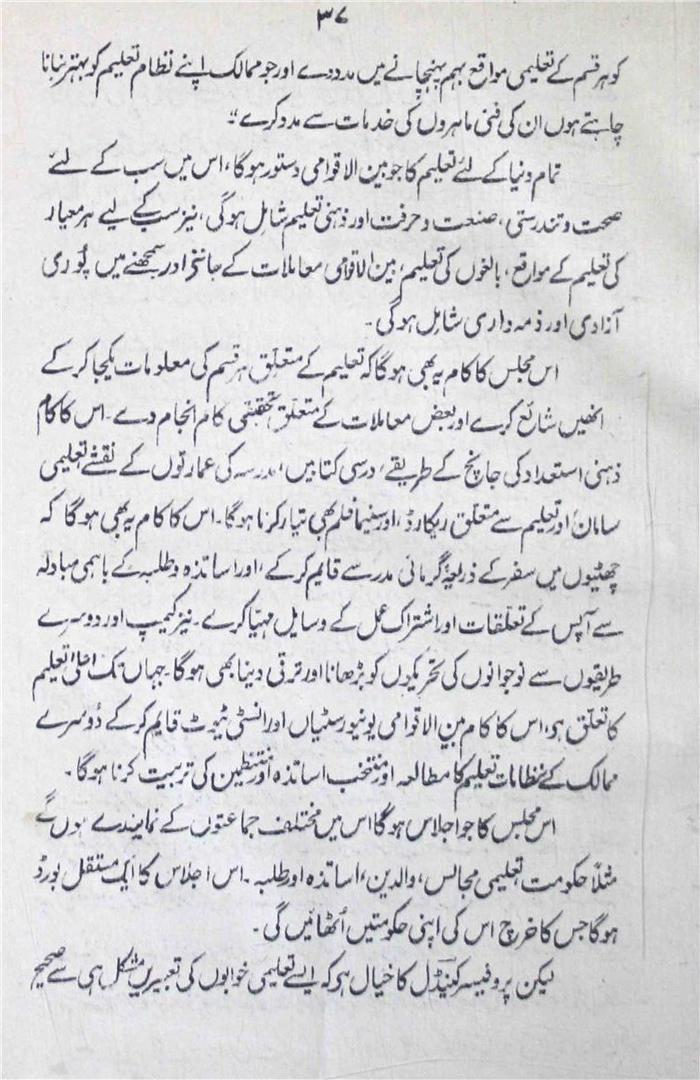 ۳۷
کو ہر قسم کے تعلیمی مواقع بہم پہنچانے میں مدد دے اور جو ممالک اپنے نظام تعلیم کو بہتر بنانا
چاہتے ہوں ان کی فنی ماہروں کی خدمات سے مدد کرے"۔
تمام دنیا کے لئے تعلیم کا جو بین الاقوامی دستور ہوگا، اس میں سب کے لئے
صحت و تندرستی، صنعت و حرفت اور ذہنی تعلیم شامل ہوگی، نیز سب کے لیے ہر معیار
کی تعلیم کے مواقع، بالغوں کی تعلیم، بین الاقوامی معاملات کے جاننے اور سمجھنے میں پوری
آزادی اور ذمہ داری شامل ہوگی۔
اس مجلس کا کام یہ بھی ہوگا کہ تعلیم کے متعلق ہر قسم کی معلومات یکجا کر کے
انھیں شائع کرے اور بعض معاملات کے متعلق تحقیقی کام انجام دے۔ اس کا کام
ذہنی استعداد کی جانچ کے طریقے، درسی کتابیں، مدرسہ کی عمارتوں کے نقشے تعلیمی
سامان، اور تعلیم سے متعلق ریکارڈ، اور سنیما فلم بھی تیار کرنا ہوگا۔ اس کا کام یہ بھی ہوگا کہ
چھٹیوں میں سفر کے ذریعہ گرمائی مدرسے قایم کر کے، اور اساتذہ و طلبہ کے باہمی مبادلہ
سے آپس کے تعلقات اور اشتراک عمل کے وسایل مہیا کرے۔ نیز کیمپ اور دوسرے
طریقوں سے نوجوانوں کی تحریکوں کو بڑھانا اور ترقی دینا بھی ہوگا۔ جہاں تک اعلیٰ تعلیم
کا تعلق ہو، اس کا کام بین الاقوامی یونیورسٹیاں اور انسٹی ٹیوٹ قایم کر کے دوسرے
ممالک کے نظامات تعلیم کا مطالعہ اور منتخب اساتذہ اور منتظمین کی تربیت کرنا ہوگا۔
اس مجلس کا جو اجلاس ہوگا اس میں مختلف جماعتوں کے نمایندے ہوں گے
مثلاً حکومت، تعلیمی مجالس، والدین، اساتذہ اور طلبہ۔ اس اجلاس کا ایک مستقل بورڈ
ہوگا جس کا خرچ اس کی اپنی حکومتیں اُٹھائیں گی۔
لیکن پروفیسر کینڈل کا خیال ہی کہ ایسے تعلیمی خوابوں کی تعبیریں مشکل ہی سے صحیح